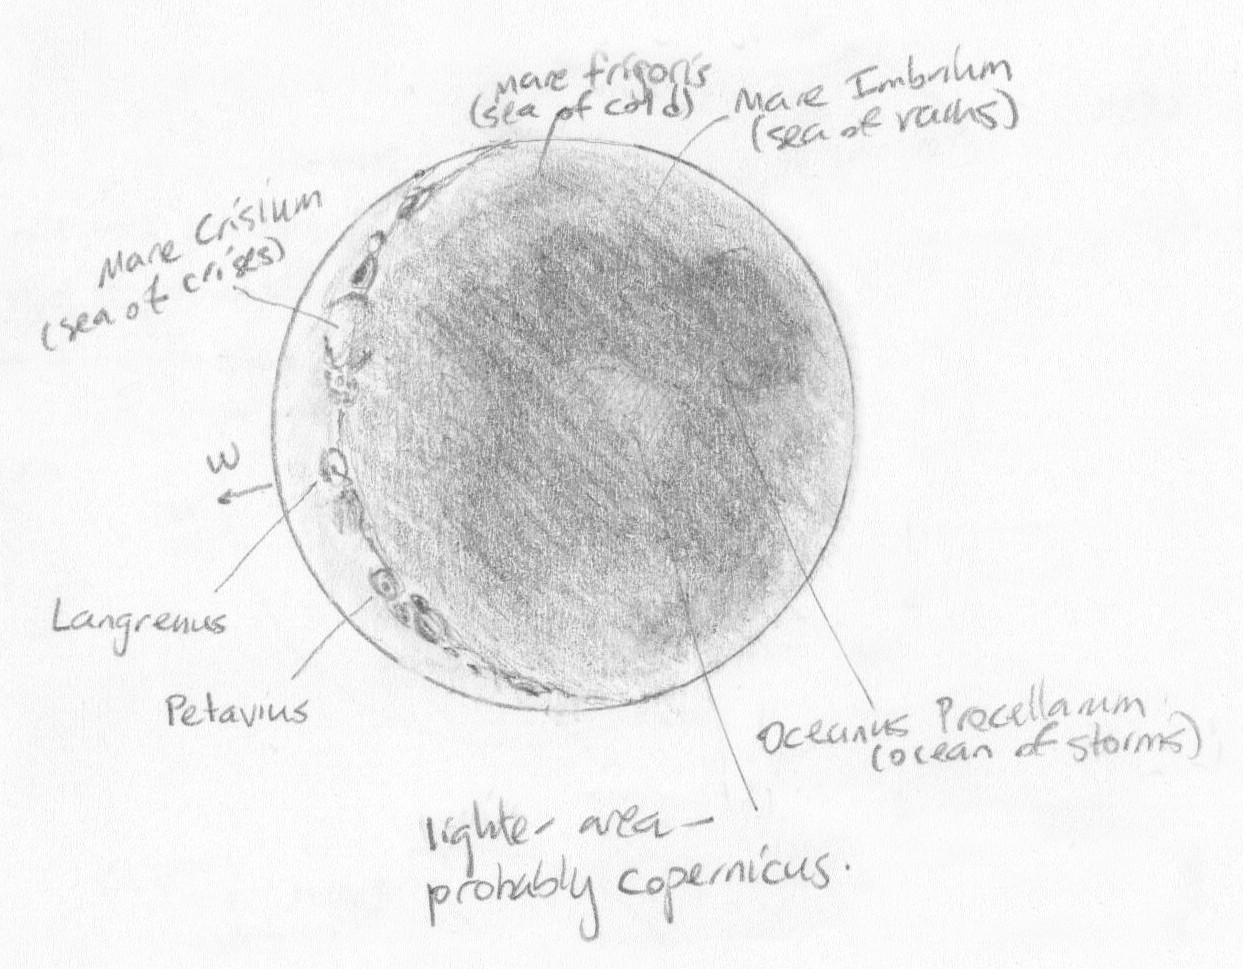 mare frigoris
(sea of cold)
Mare Imbrium
(sea of rains)
Mare Crisium
(sea of crises)
W
Langrenus
Petavius
Oceanus Procellarum
(ocean of storms)
lighter area -
probably copernicus.